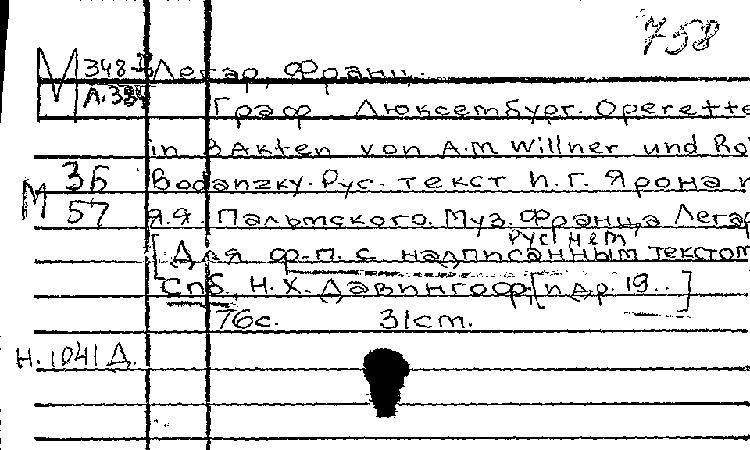 758
М 348-II Легар, Франц.
Л.384 Граф Люксембург. Operette
in 3 Akten von A.M Willner und Ro
М 3Б Bodanzky. Рус. текст И.Г. Ярона и
57 Я.Я. Пальмского. Муз. Франца Легар
рус нем
[Для ф-п. с надписанным текстом
Спб, Н.Х. Давингоф, [п др. 19..]
76с. 31cm.
Н.1041Д.